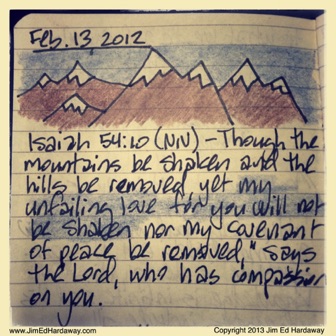 Feb. 13, 2012
Isaiah 54:10 (NIV) - Though the
mountains be shaken and the
hills be removed, yet my
unfailing love for you will not
be shaken nor my covenant
of peace be removed," says
the Lord, who has compassion
on you.
www.JimEdHardaway.com
Copyright 2013 Jim Ed Hardaway